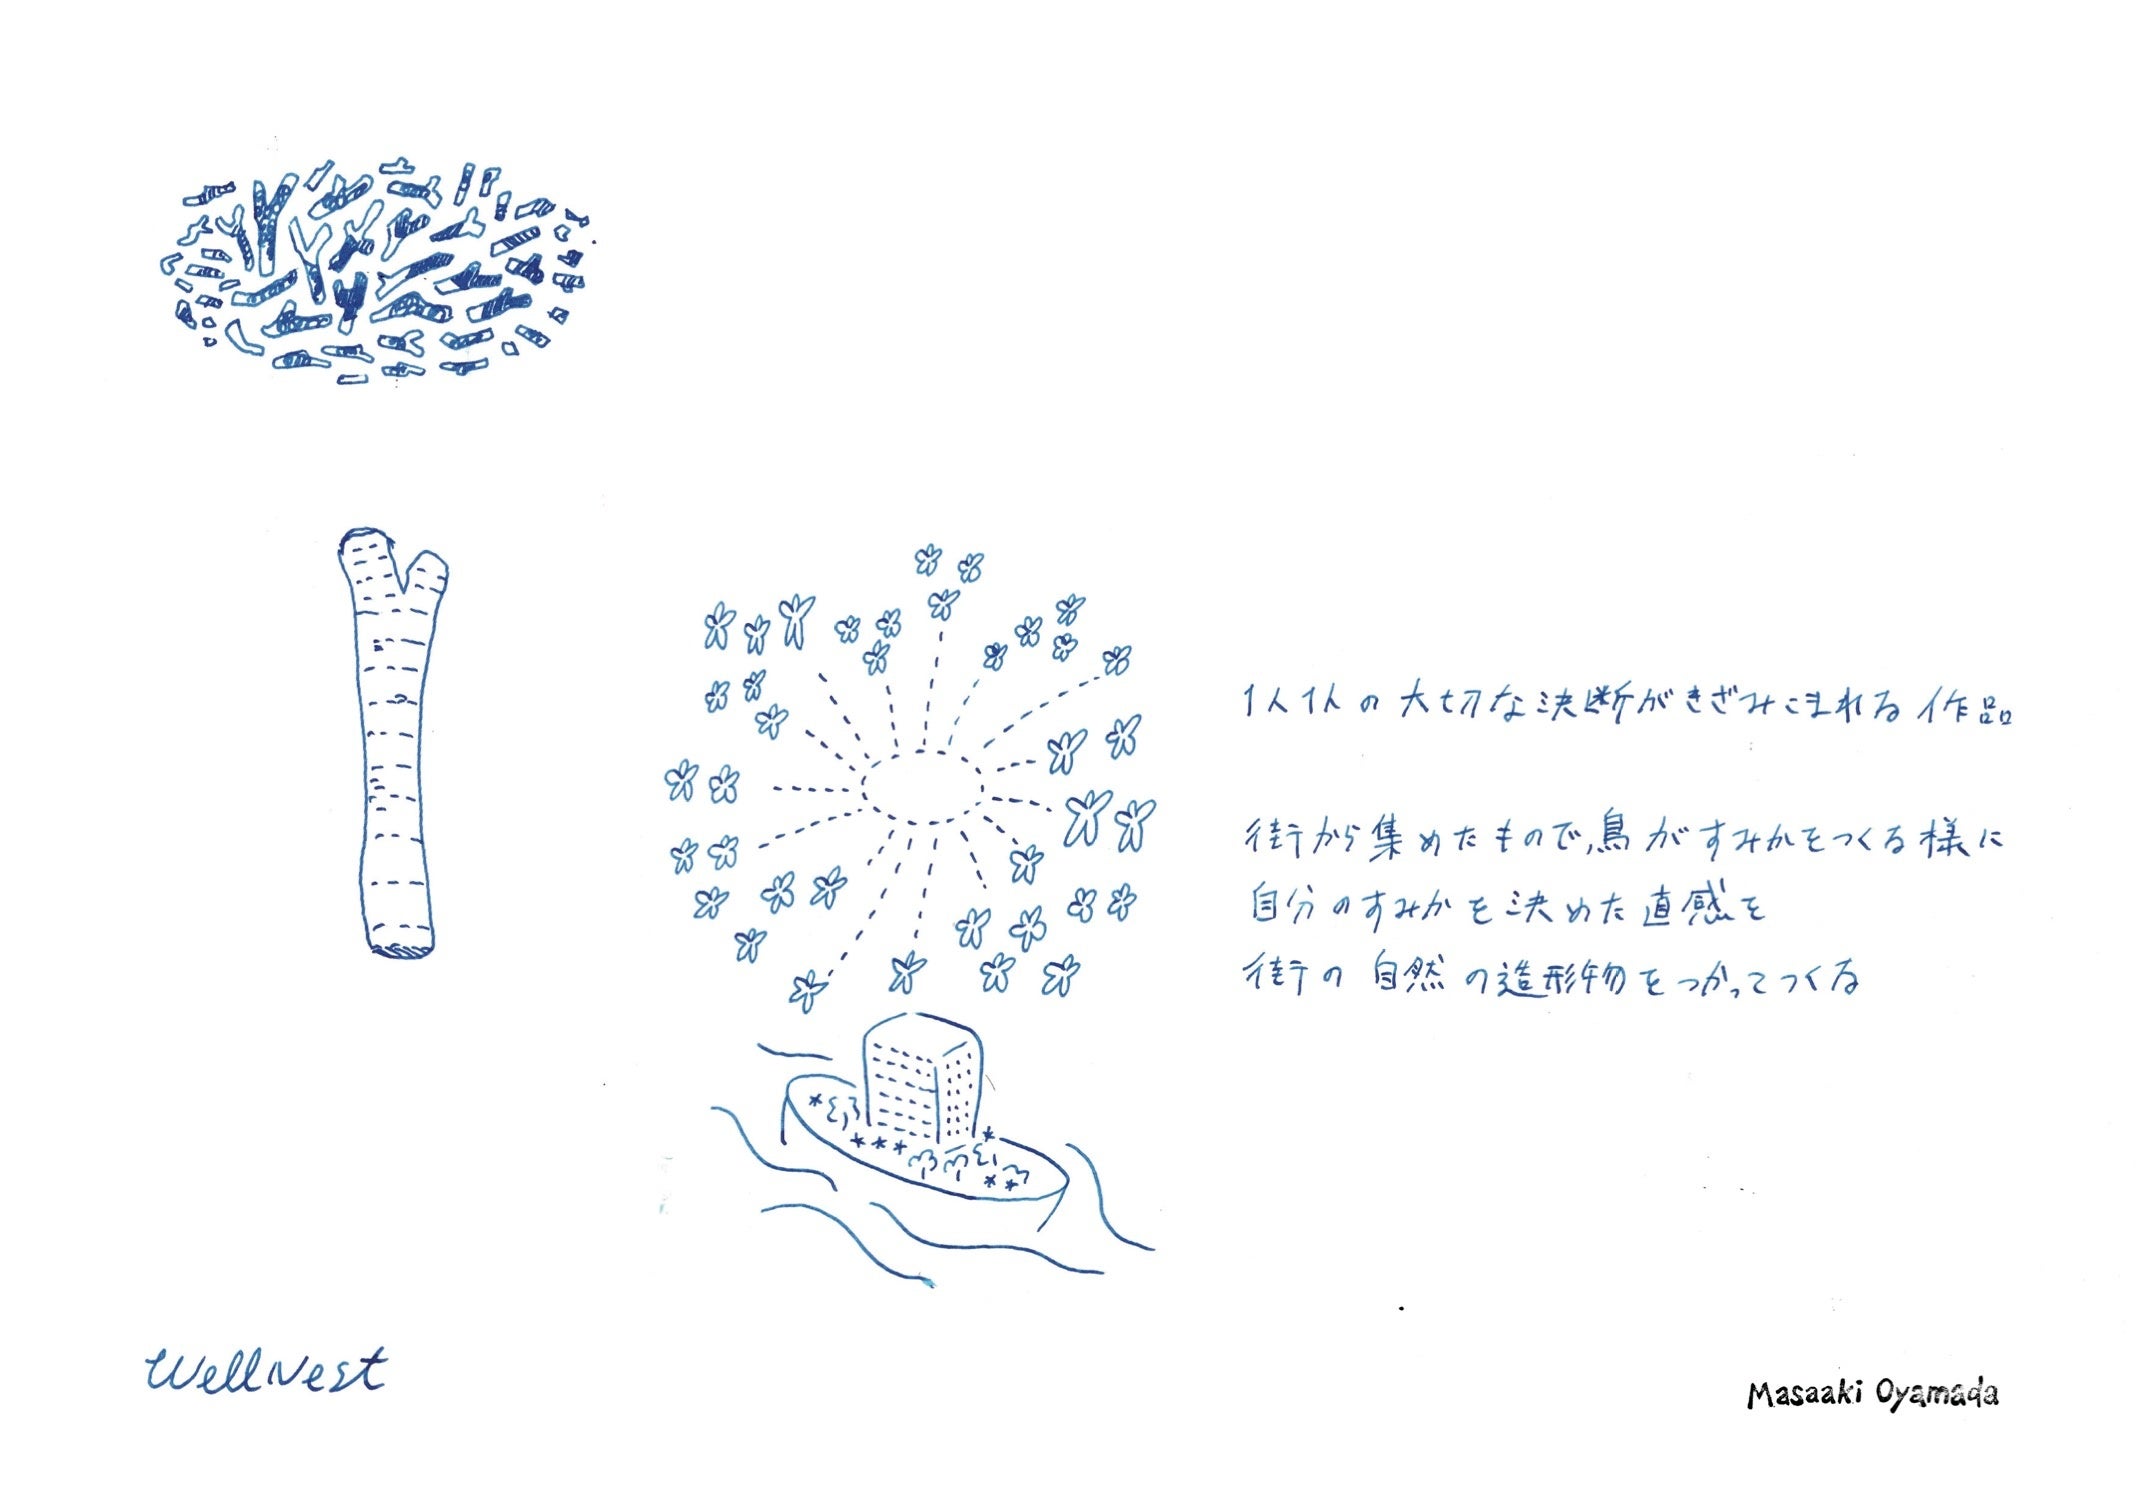 1人1人の大切な決断がきざみこまれる作品
街から集めたもので、鳥がすみかをつくる様に
自分のすみかを決めた直感を
街の自然の造形物をつかってつくる
Wellnest
Masaaki Oyamada